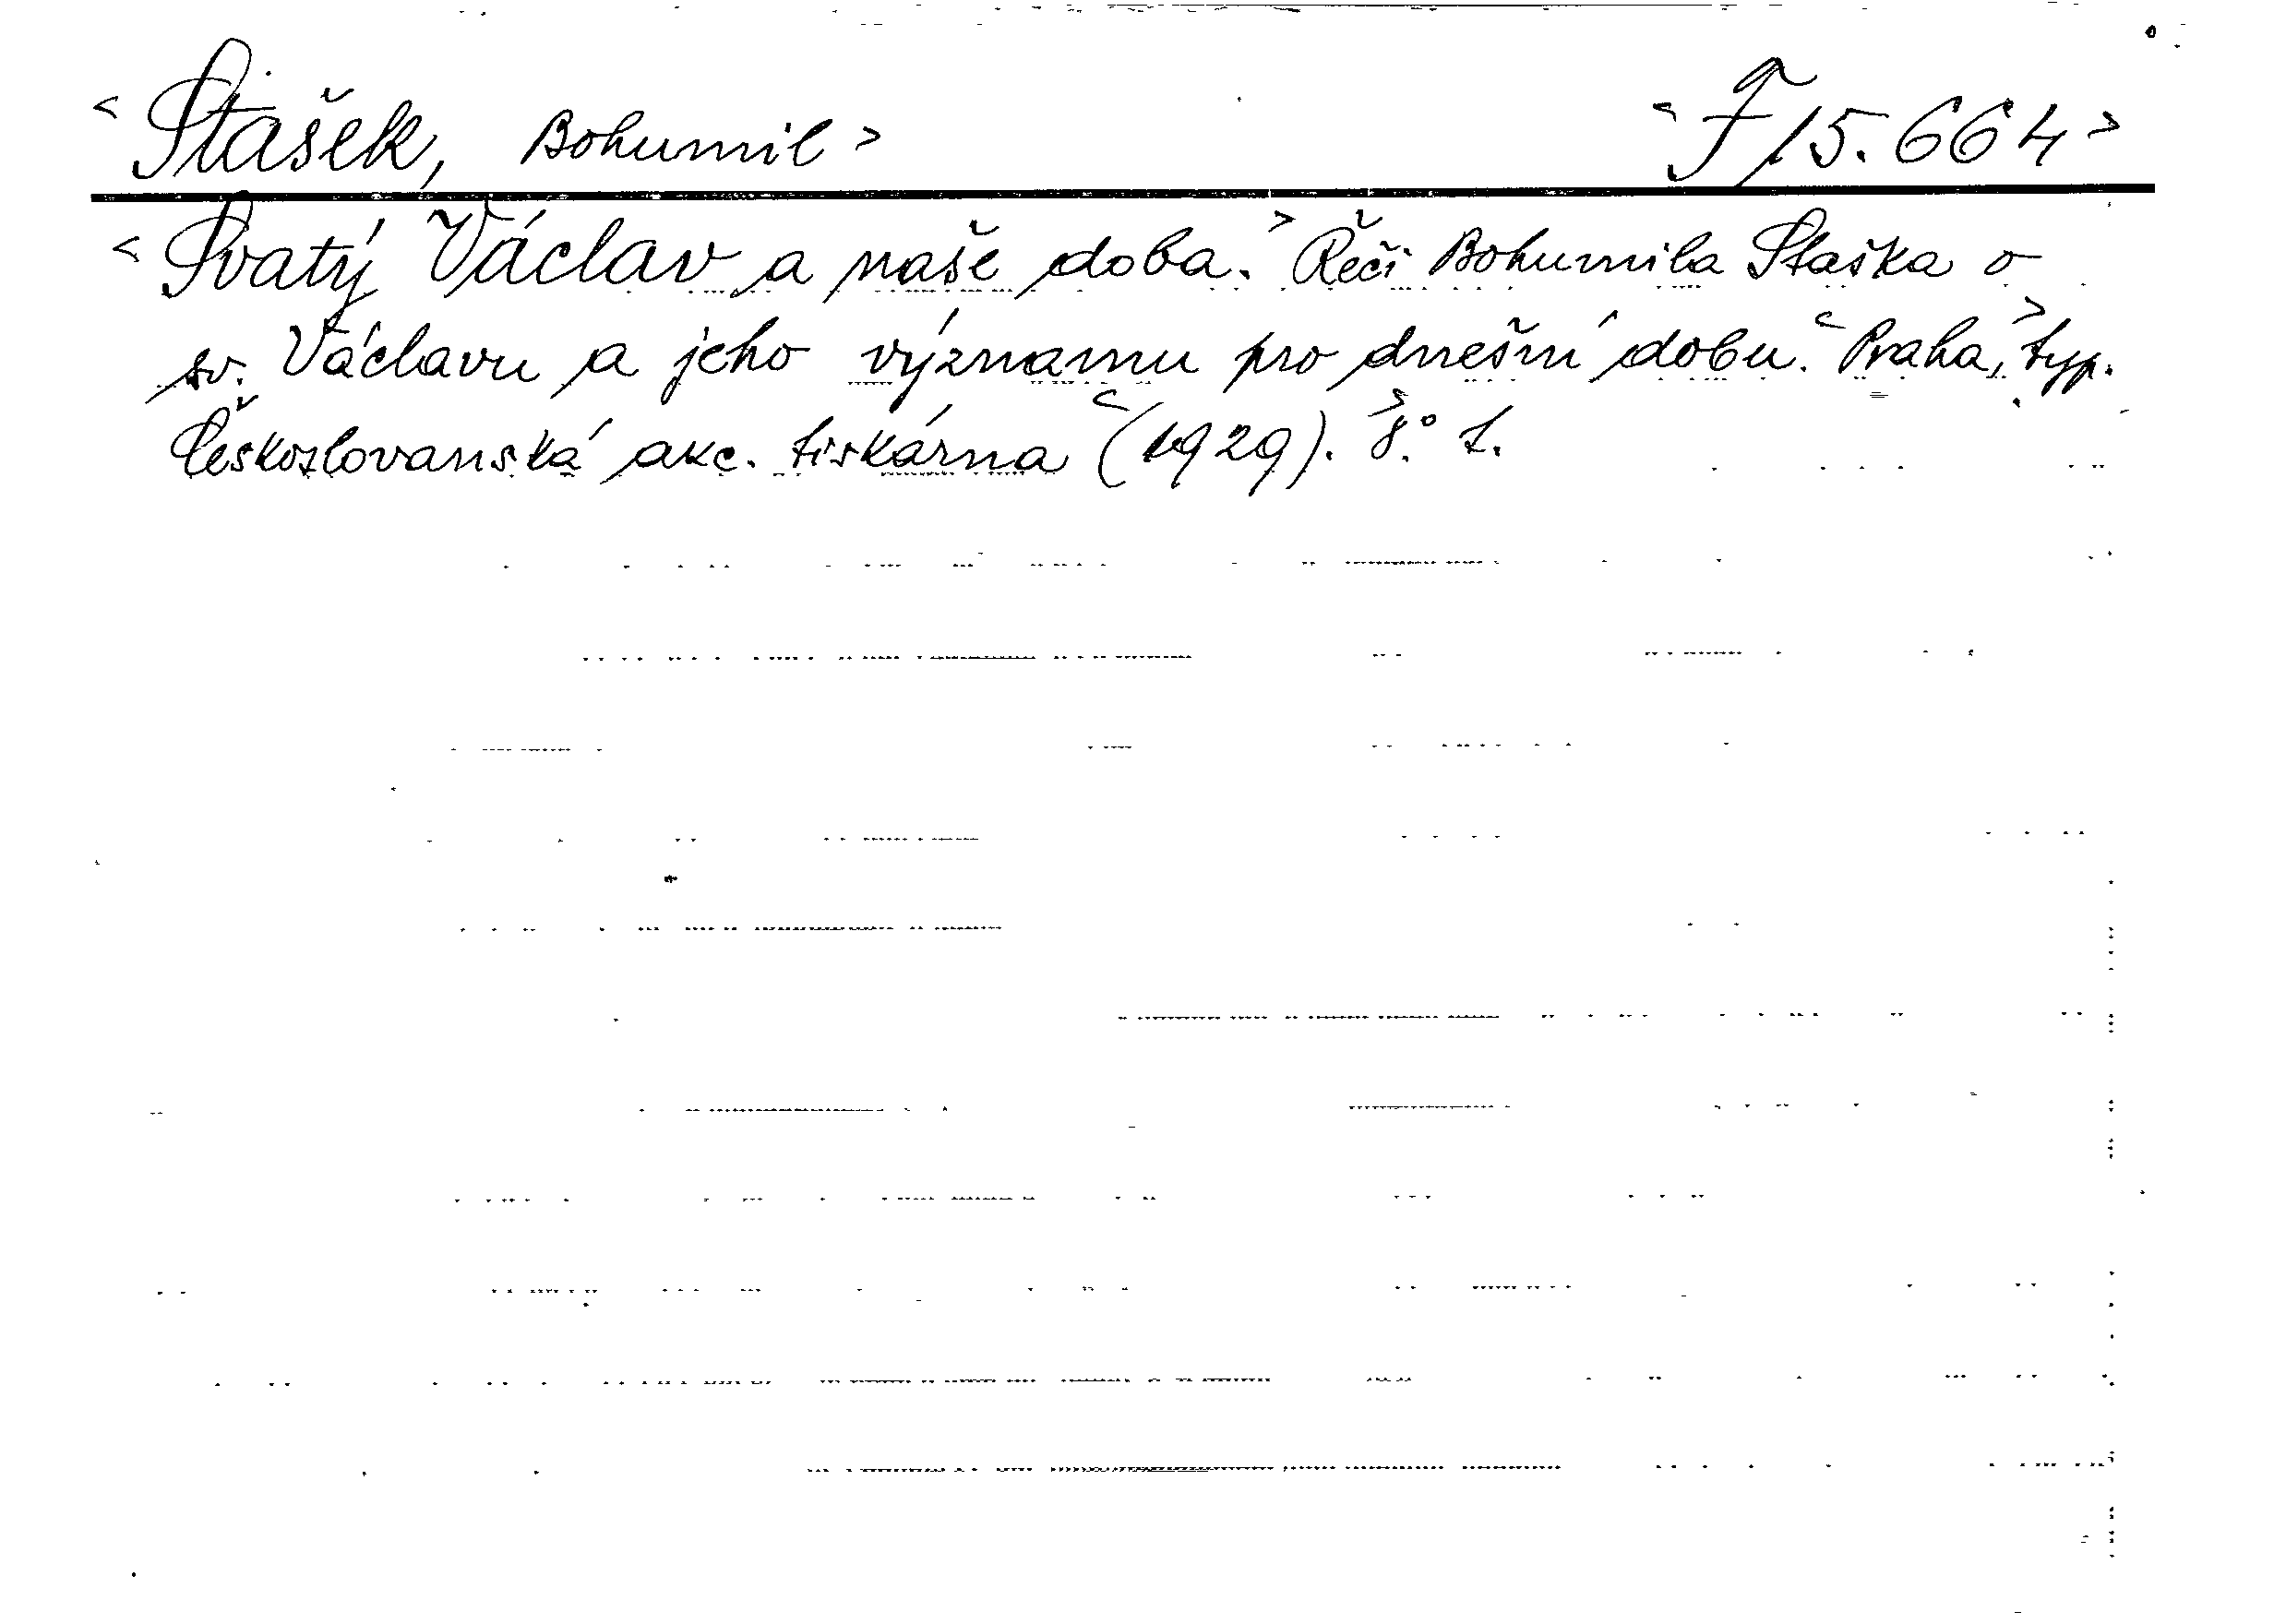 < Stašek, Bohumil > < F 15.664 >
< Svatý Václav a naše doba. > Řeči Bohumila Staška o
sv. Václavu a jeho významu pro dnešní dobu. < Praha, > typ.
Českoslovanská akc. tiskárna < (1929). > 8.° 1.